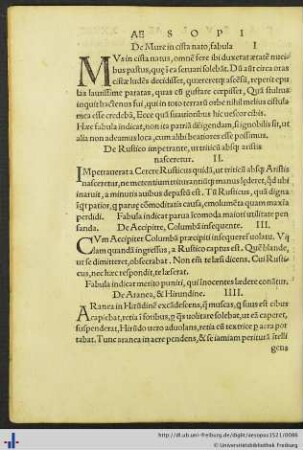 AESOPI
De Mure in cista nato, fabula I
MVs in cista natus, omnē fere ibi duxerat ætatē nuci
bus pastus, quę i ea seruari solebāt. Dū aūt circa oras
cistæ ludēs decidisset, quæreretq; ascēsū, reperit epu
las lautissime paratas, quas cū gustare cœpisset, Quā stultus
inquit hactenus fui, qui in toto terrarū orbe nihil melius cistula
mea esse credebā, Ecce quā suauioribus hic uescor cibis.
Hæc fabula indicat, non ita patriā diligendam, si ignobilis sit, ut
alia non adeamus loca, cum alibi beatiores esse possimus.
De Rustico impetrante, ut triticū absq; aristis
nasceretur. II
IMpetrauerat a Cerere Rusticus quidā, ut triticū absq; Aristis
nasceretur, ne metentium
inaruit, a minutis auibus depastū est. Tū Rusticus, quā digna
iq̄t patior, q̄ paruę cōmoditatis causa, emolumēta quam maxīa
perdidi. Fabula indicat parua icomoda maiori utilitate pen
sanda. De Accipitre, Columbā insequente. III.
CVm Accipiter Columbā præcipiti insequeret uolatu. Vil
lam quandā ingressus, a Rustico captus est. Quē blande,
ut se dimitteret, obsecrabat. Non eīs te læsi dicens. Cui Rusti
cus, nec hæc respondit, te læserat.
Fabula indicat merito puniri, qui inocentes lædere conātur.
De Aranea, & Hirundine. IIII.
ARanea in Hirūdinē excādescens, q̄ muscas, q̄ suus est cibus
capiebat, retia i foribus, p q̄s uolitare solebat, ut eā caperet,
suspenderat, Hirūdo uero aduolans, retia cū textrice p aera por
tabat. Tunc aranea in aere pendens, & se iamiam periturā itelli
gens
http://dl.ub.uni-freiburg.de/diglit/aesopus1521/0086
© Universitätsbibliothek Freiburg